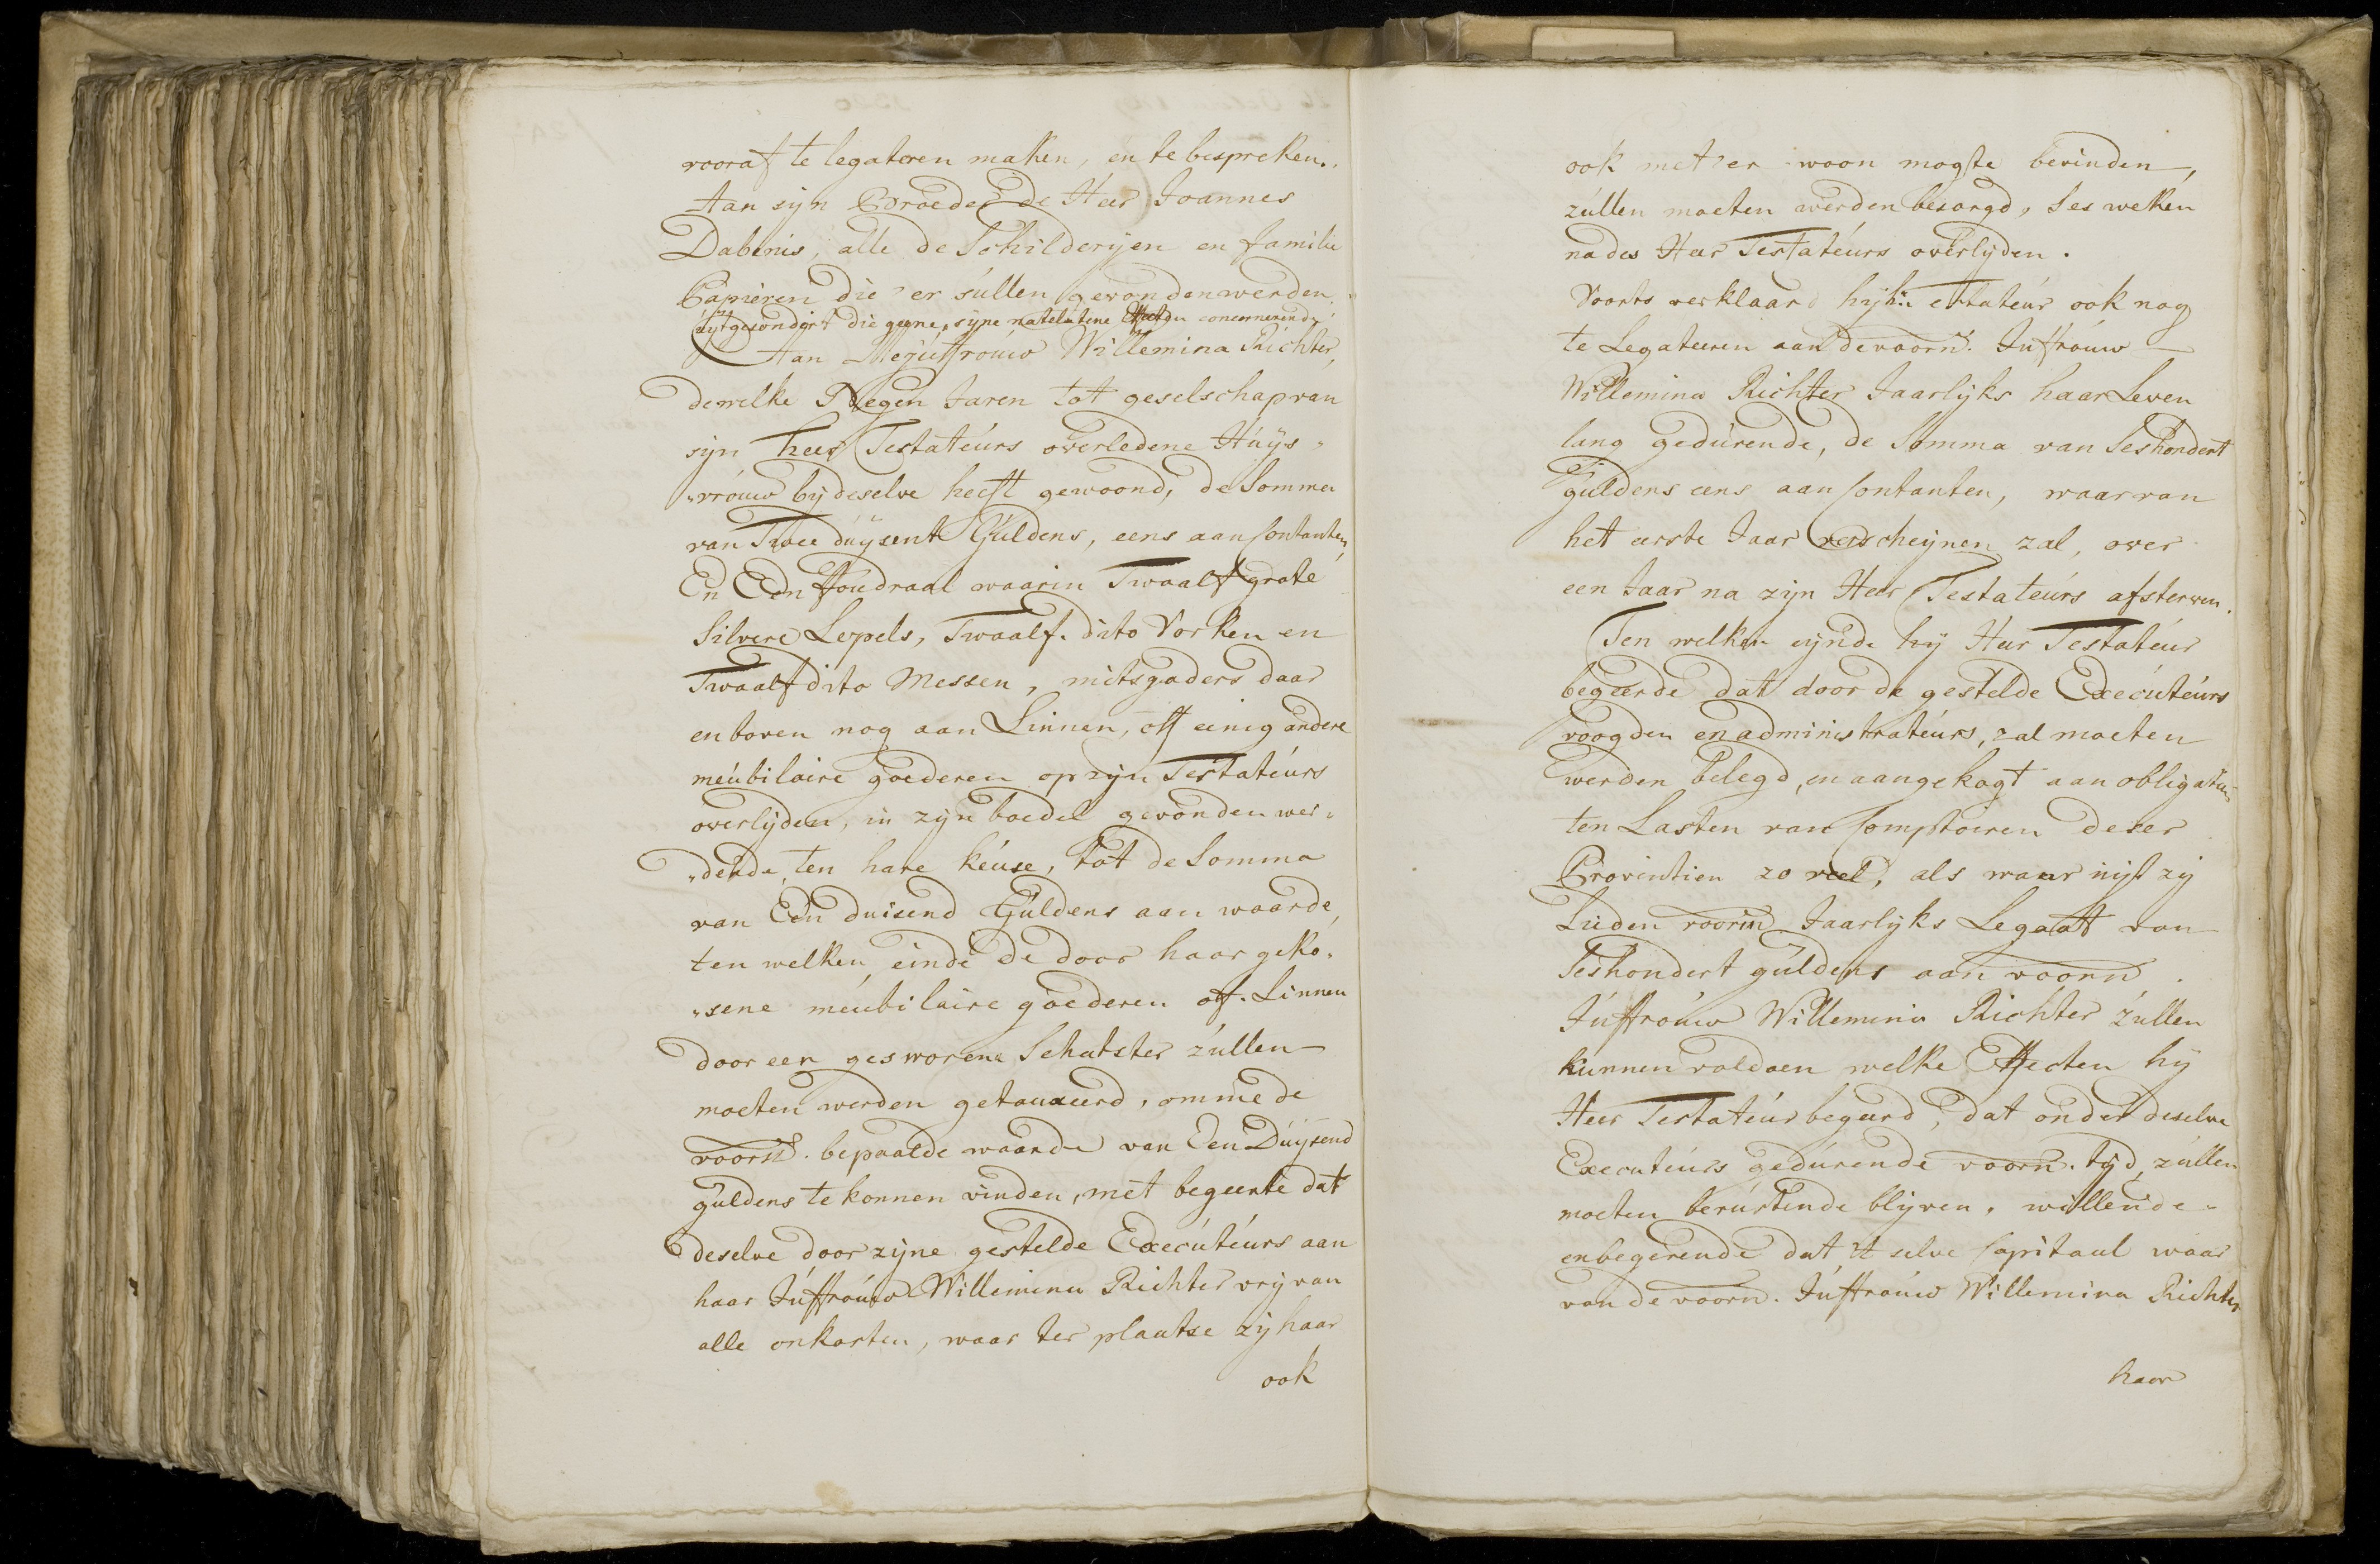 vooraf te legateren maken, en te bespreken.
Aan sijn Broeder de Heer Joannes
Dabenis, alle de Schilderijen en familie
Papieren die 'er sullen gevonden werden
uytgesondert die geene, syne natelatene Effecten concernerende
Aan Mejuffrouw Willemina Richter,
dewelke Negen Jaren tot geselschap van
sijn heer Testateurs overledene Huijs„
„vrouw bij deselve heeft gewoond, de Somma
van Twee duijsent Guldens, eens aan Contanten,
En Een Foudraal waarin Twaalf grote
Silvere Lepels, Twaalf dito Vorken en
Twaalf dito Messen, mitsgaders daar
en boven nog aan Linnen, off eenig andere
meubilaire goederen op zijn Testateurs
overlijden, in zijn boedel gevonden wer„
„dende, ten hare keuse, tot de Somma
van Een duisend Guldens aan waarde,
ten welken einde de door haar geko„
„sene meubilaire goederen off Linnen
door een geswoorene Schatster zullen
moeten werden getauxeerd, omme de
voorn. bepaalde waarde van Een Duijsend
guldens te konnen vinden, met begeerte dat
deselve door zijne gestelde Executeurs aan
haar Juffrouw Willemina Richter vrij van
alle onkosten, waar ter plaatse zij haar
ook
ook met'er woon mogte bevinden,
zullen moeten werden besorgd, Ses weken
na des Heer Testateurs overlijden.
Voorts verklaard hij Testateur ook nog
te Legateeren aan de voorn. Juffrouw
Willemina Richter Jaarlijks haar Leven
lang gedurende, de Somma van Seshondert
guldens eens aan Contanten, waar van
het eerste Jaar verscheijnen zal, over
een Jaar na zijn Heer Testateurs afsterven.
Ten welken eijnde hij Heer Testateur
begeerde dat door de gestelde Executeurs
voogden en administrateurs, zal moeten
werden belegd, en aangekogt aan obligatien
ten Lasten van Comptoiren deser
Provintien zo veel, als waar uijt zij
Lieden voorn Jaarlijks Legaat van
Seshondert guldens aan voorn
Juffrouw Willemina Richter zullen
kunnen voldoen welke Effecten hij
Heer Testateur begeerd, dat onder deselve
Executeurs gedurende voorn. tijd zullen
moeten berustende blijven, willende
en begerende dat 't selve Capitaal waar
van de voorn. Juffrouw Willemina Richter
haar